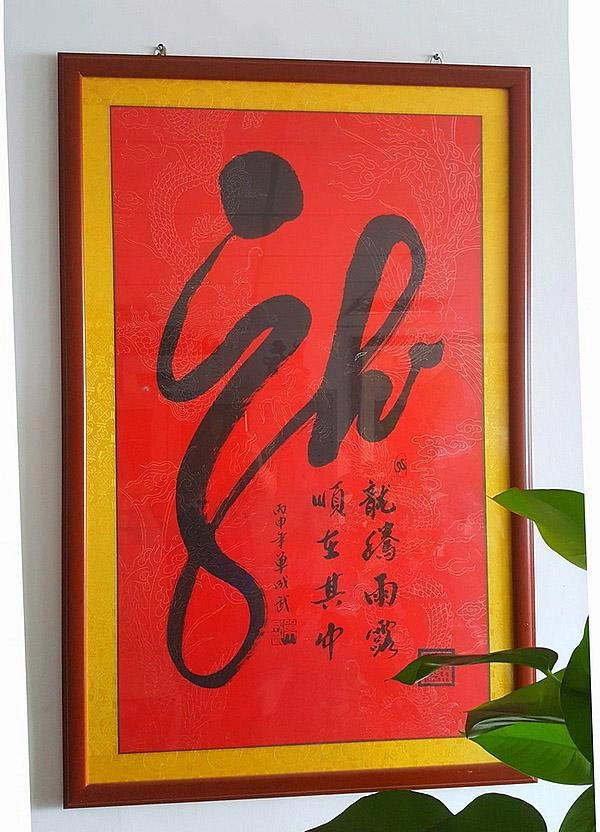 龍
龍騰雨露
順在其中
丙申年單成武